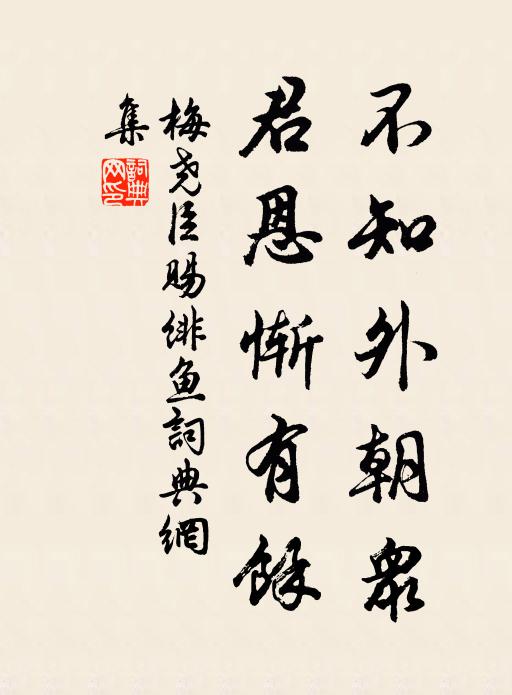 不知外朝衆
君恩惭有餘
梅尧臣赐绯鱼詞典網
集
詞典
网印